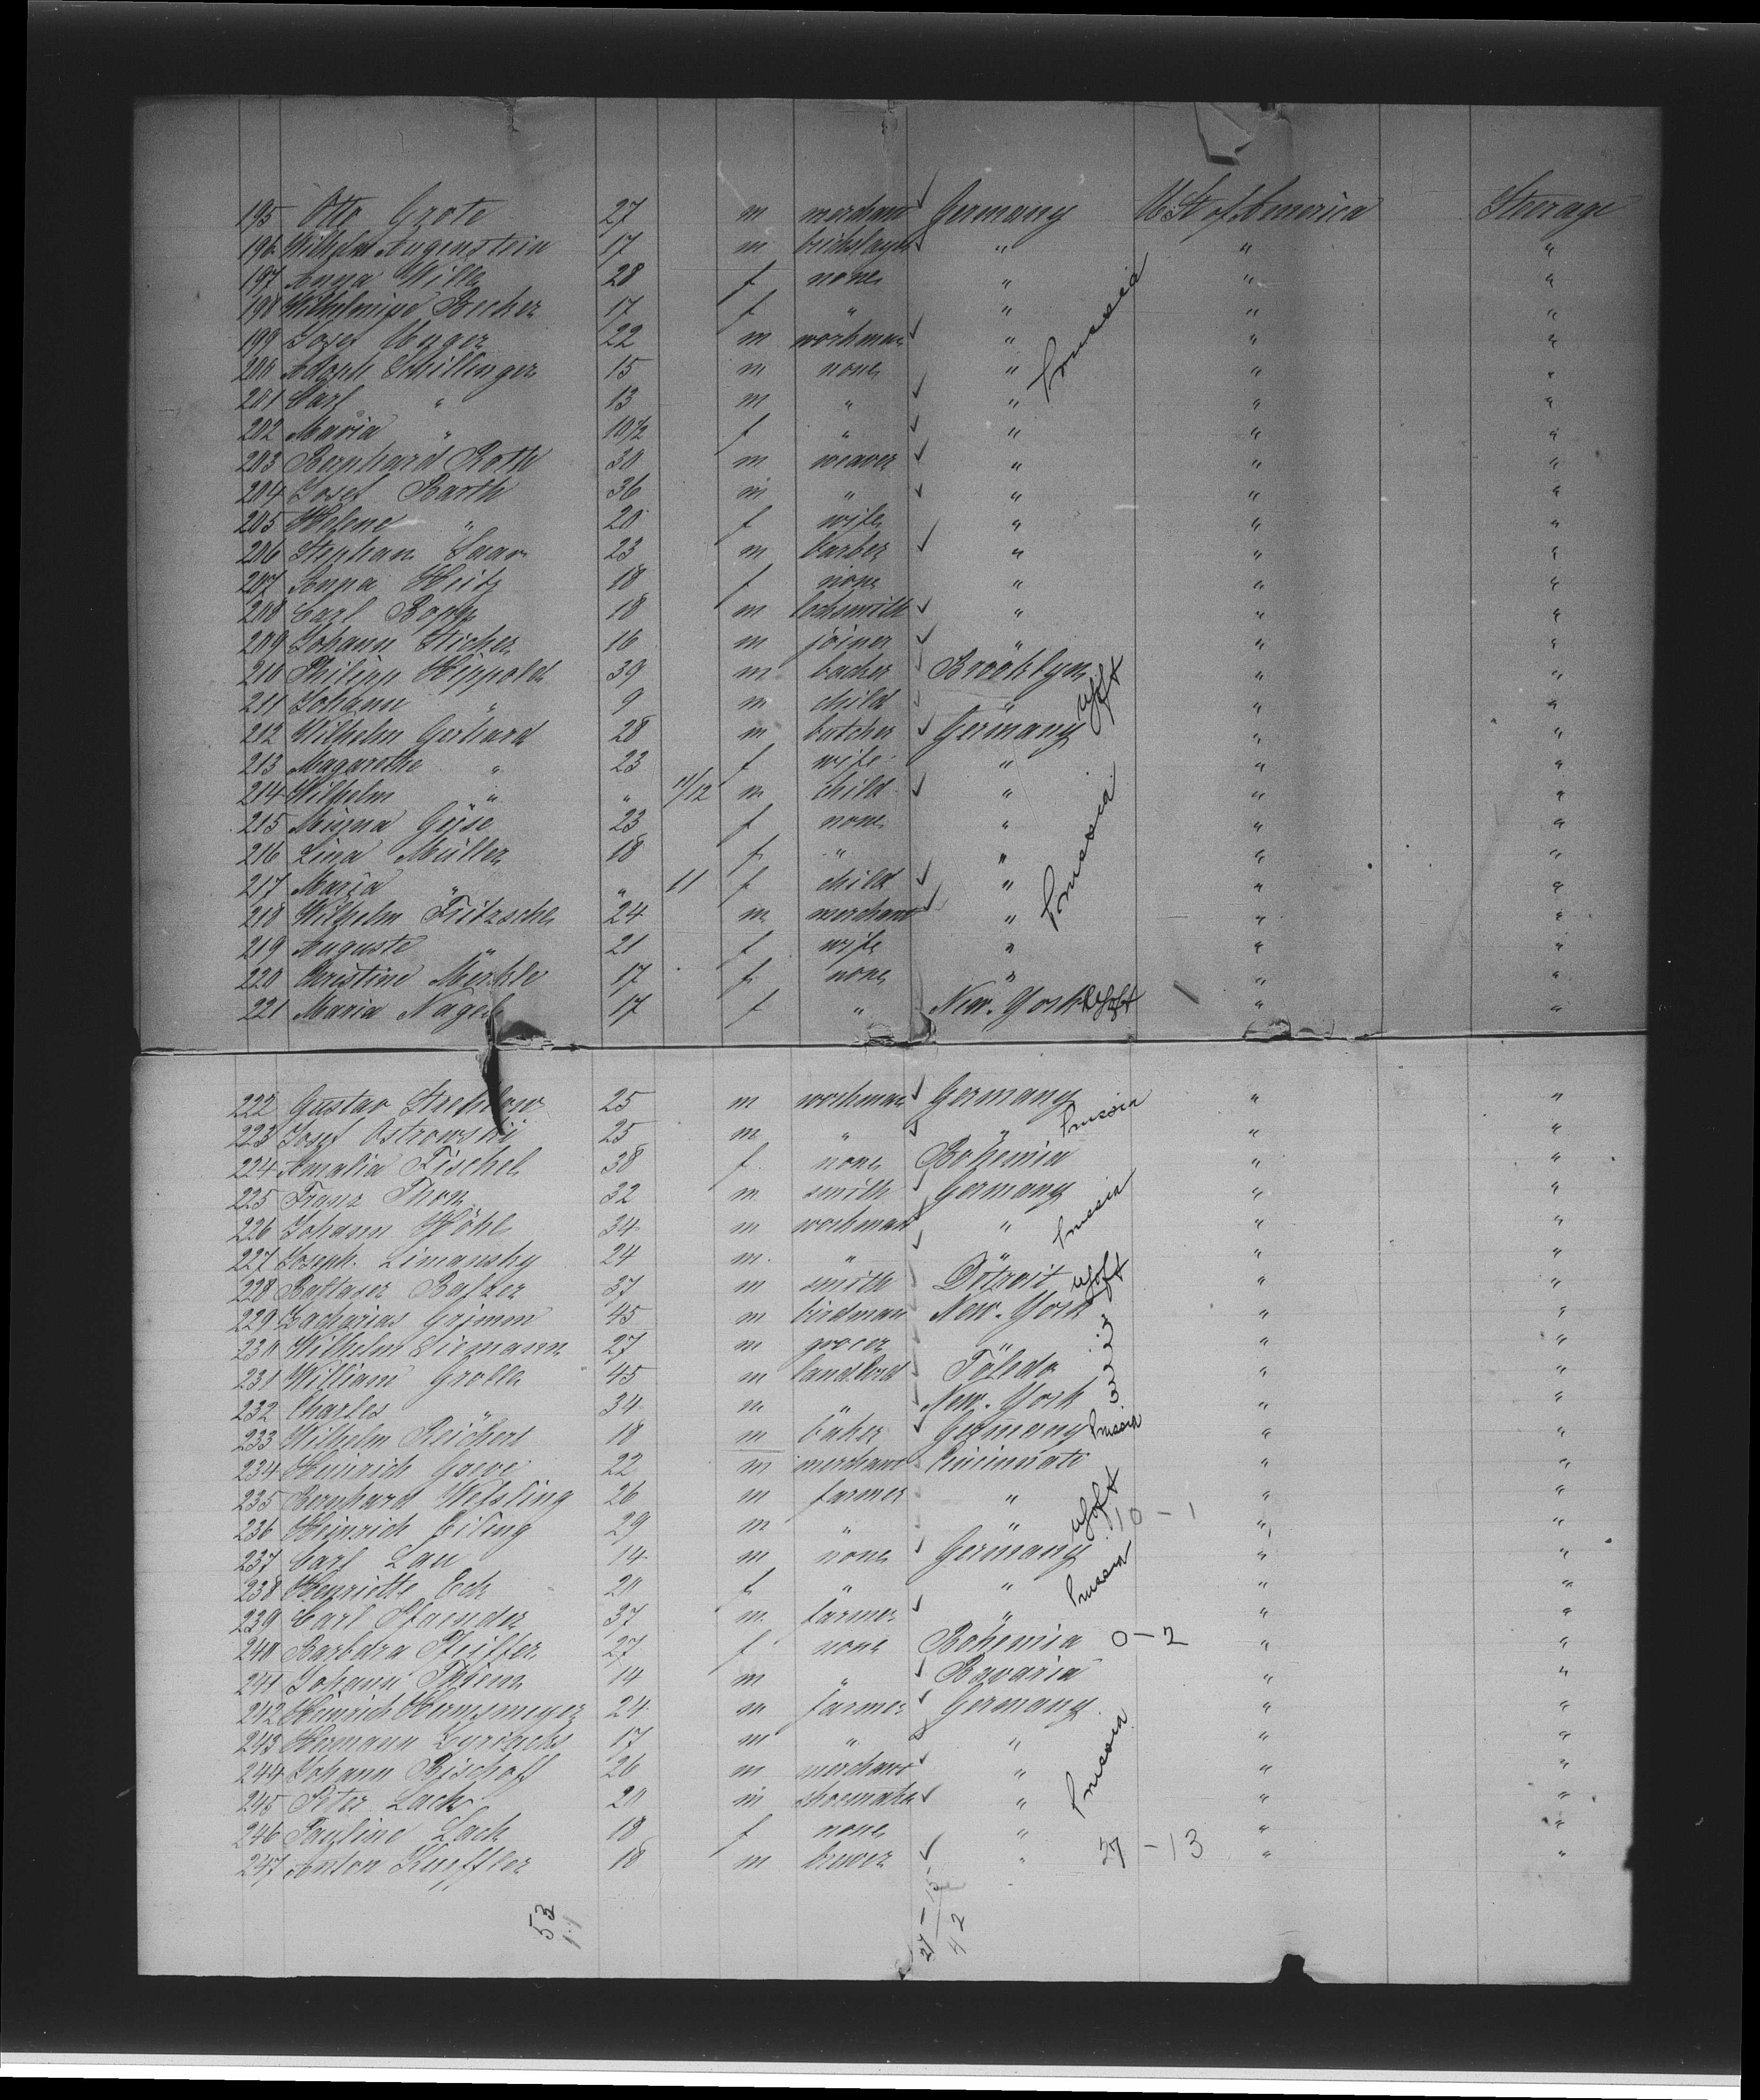 195 Otto Grote 27 m merchant Germany U St of America Steerage
196 Wilhelm Augenstein 17 m bricklayer " " "
197 Anna Wille 28 f none " " "
198 Wilhelmine Becker 17 f " " " "
199 Josef Unger 22 m workman " " "
200 Adolph Schillinger 15 m none " Prussia " "
201 Carl " 13 m " " " "
202 Maria " 10 1/2 f " " " "
203 Bernhard Roth 30 m weaver " " "
204 Josef Barth 36 m " " " "
205 Helene " 20 f wife " " "
206 Stephan Saar 23 m barber " " "
207 Anna Heitz 18 f none " " "
208 Carl Bopp 18 m locksmith " " "
209 Johann Sticher 16 m joiner " " "
210 Philipp Hippold 39 m backer Brooklyn " "
211 Johann " 9 m child " UStA " "
212 Wilhelm Gerhard 28 m butcher Germany " "
213 Magarethe " 23 f wife " " "
214 Wilhelm " " 11/12 m child " " "
215 Minna Güse 23 f none " " "
216 Lina Müller 18 f " " " "
217 Maria " " 11 f child " Prussia " "
218 Wilhelm Fritzsche 24 m merchant " " "
219 Auguste " 21 f wife " " "
220 Christine Merkle 17 f none " " "
221 Maria Nagel 17 f " New-York UStA " "
222 Gustav Strehlow 25 m workman Germany " "
223 Josef Ostrowski 25 m " " Prussia " "
224 Amalia Fischel 38 f none Bohemia " "
225 Franz Thon 32 m smith Germany " "
226 Johann Höhl 34 m workman " Prussia " "
227 Joseph Limansky 24 m " " " "
228 Baltaser Balzer 37 m smith Detroit UStA " "
229 Zacharias Grimm 45 m birdman New-York " "
230 Wilhelm Siemann 27 m grocer " " "
231 William Grolle 45 m landlord Toledo " "
232 Charles " 34 m " New-York " "
233 Wilhelm Reichert 18 m baker Germany Prussia " "
234 Heinrich Greve 22 m merchant Cincinnati " "
235 Bernhard Wessling 26 m farmer " " "
236 Heinrich Eiling 29 m " " UStA 10 - 1 " "
237 Carl Lau 14 m none Germany " "
238 Henriette Eck 20 f " " Prussia " "
239 Carl Staender 37 m farmer " " "
240 Barbara 27 f none Bohemia 0-2 " "
241 Johann Thiem 14 m " Bavaria " "
242 Heinrich Hermsmeyer 24 m farmer Germany " "
243 Hermann Cyriacks 17 m " " " "
244 Johann Bischoff 26 m merchant " Prussia " "
245 Peter Lack 20 m shoemaker " " "
246 Pauline Lack 18 f none " " "
247 Anton Kueffler 18 m brewer " 27 - 13 " "
53
11
27 - 15
42